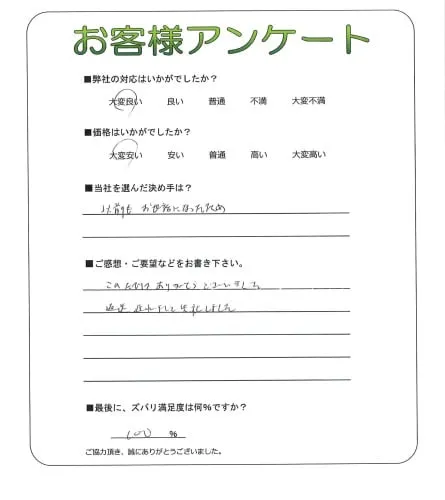 お客様アンケート
■弊社の対応はいかがでしたか?
大変良い 良い 普通 不満 大変不満
■価格はいかがでしたか?
大変安い 安い 普通 高い 大変高い
■当社を選んだ決め手は?
以前もお世話になったため
■ご感想・ご要望などをお書き下さい。
この度はありがとうございました
返送遅れまして失礼しました
■最後に、ズバリ満足度は何%ですか?
100 %
ご協力頂き、誠にありがとうございました。